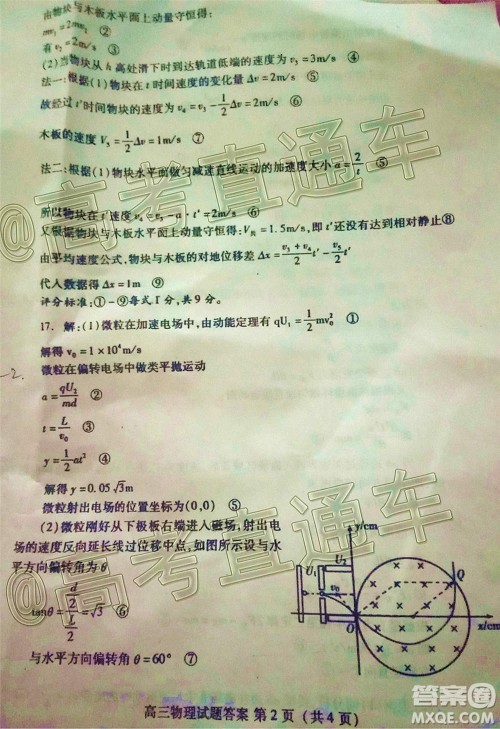 由物块与木板水平面上动量守恒得:
mv₁=2mv₂ ②
有v₂=2m/s ③
(2)当物块从h高处滑下时到达轨道低端的速度为v₃=3m/s ④
法一:根据(1)物块在t时间速度的变化量Δv=2m/s ⑤
故经过t′时间物块的速度为v₄=v₃-½Δv=2m/s ⑥
木板的速度V₅=½Δv=1m/s ⑦
法二:根据(1)物块水平面做匀减速直线运动的加速度大小a=2/t ⑤
所以物块在t′速度v₄=v₃-a·t′=2m/s ⑥
又根据物块与木板水平面上动量守恒得:V共=1.5m/s,即t′还没有达到相对静止⑧
由平均速度公式,物块与木板的对地位移差Δx=(v₃+v₄)/2 t′-v₅/2 t′
代入数据得Δx=1m ⑨
评分标准:①-⑨每式1分,共9分。
17. 解:(1)微粒在加速电场中,由动能定理有qU₁=½mv₀² ①
解得v₀=1×10⁴m/s
微粒在偏转电场中做类平抛运动
a=qU₂/md ②
t=L/v₀ ③
y=½at² ④
解得y=0.05√3m
微粒射出电场的位置坐标为(0,0) ⑤
(2)微粒刚好从下极板右端进入磁场,射出电
场的速度反向延长线过位移中点,如图所示设与水
平方向偏转角为θ
tanθ=(d/2)/(L/2)=√3 ⑥
与水平方向偏转角θ=60° ⑦
y/cm
U₁
U₂
v₀
Q
O
x/cm
高三物理试题答案 第2页(共4页)
@高考直通车
@高考直通车
答案圈
MXQE.COM